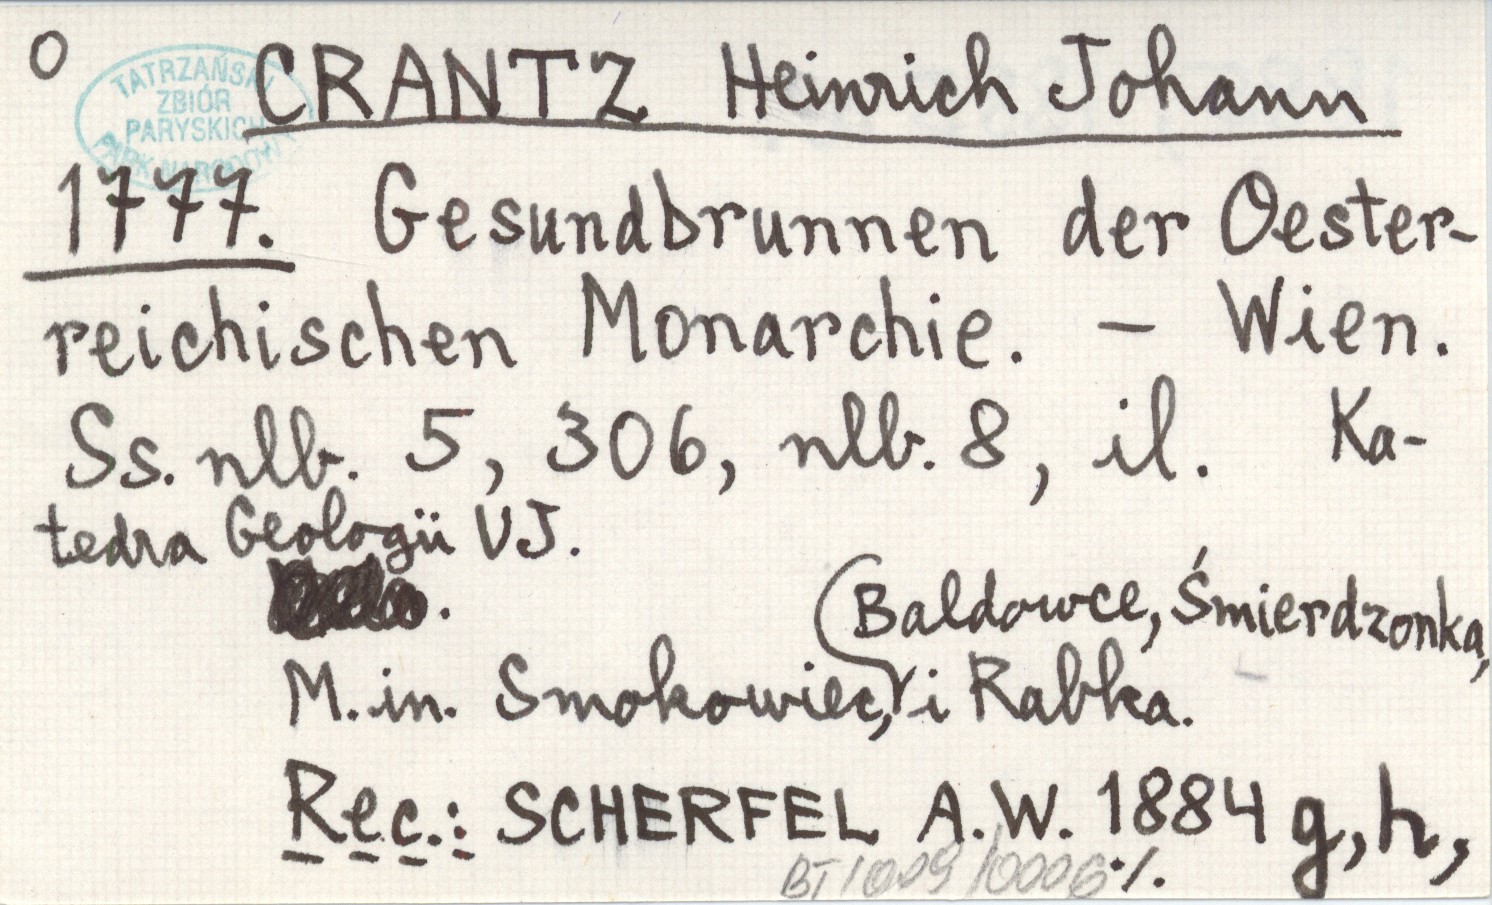 O CRANTZ Heinrich Johann
TATRZAŃSKI
ZBIÓR
PARYSKICH
PARK NARODOWY
1777. Gesundbrunnen der Oester-
reichischen Monarchie. – Wien.
Ss. nlb. 5, 306, nlb. 8, il. Ka-
tedra Geologii UJ.
Baldowce, Śmierdzonka,
M. in. Smokowiec, i Rabka.
Rec.: SCHERFEL A.W. 1884 g, h,
BT/1009/0006 ./.